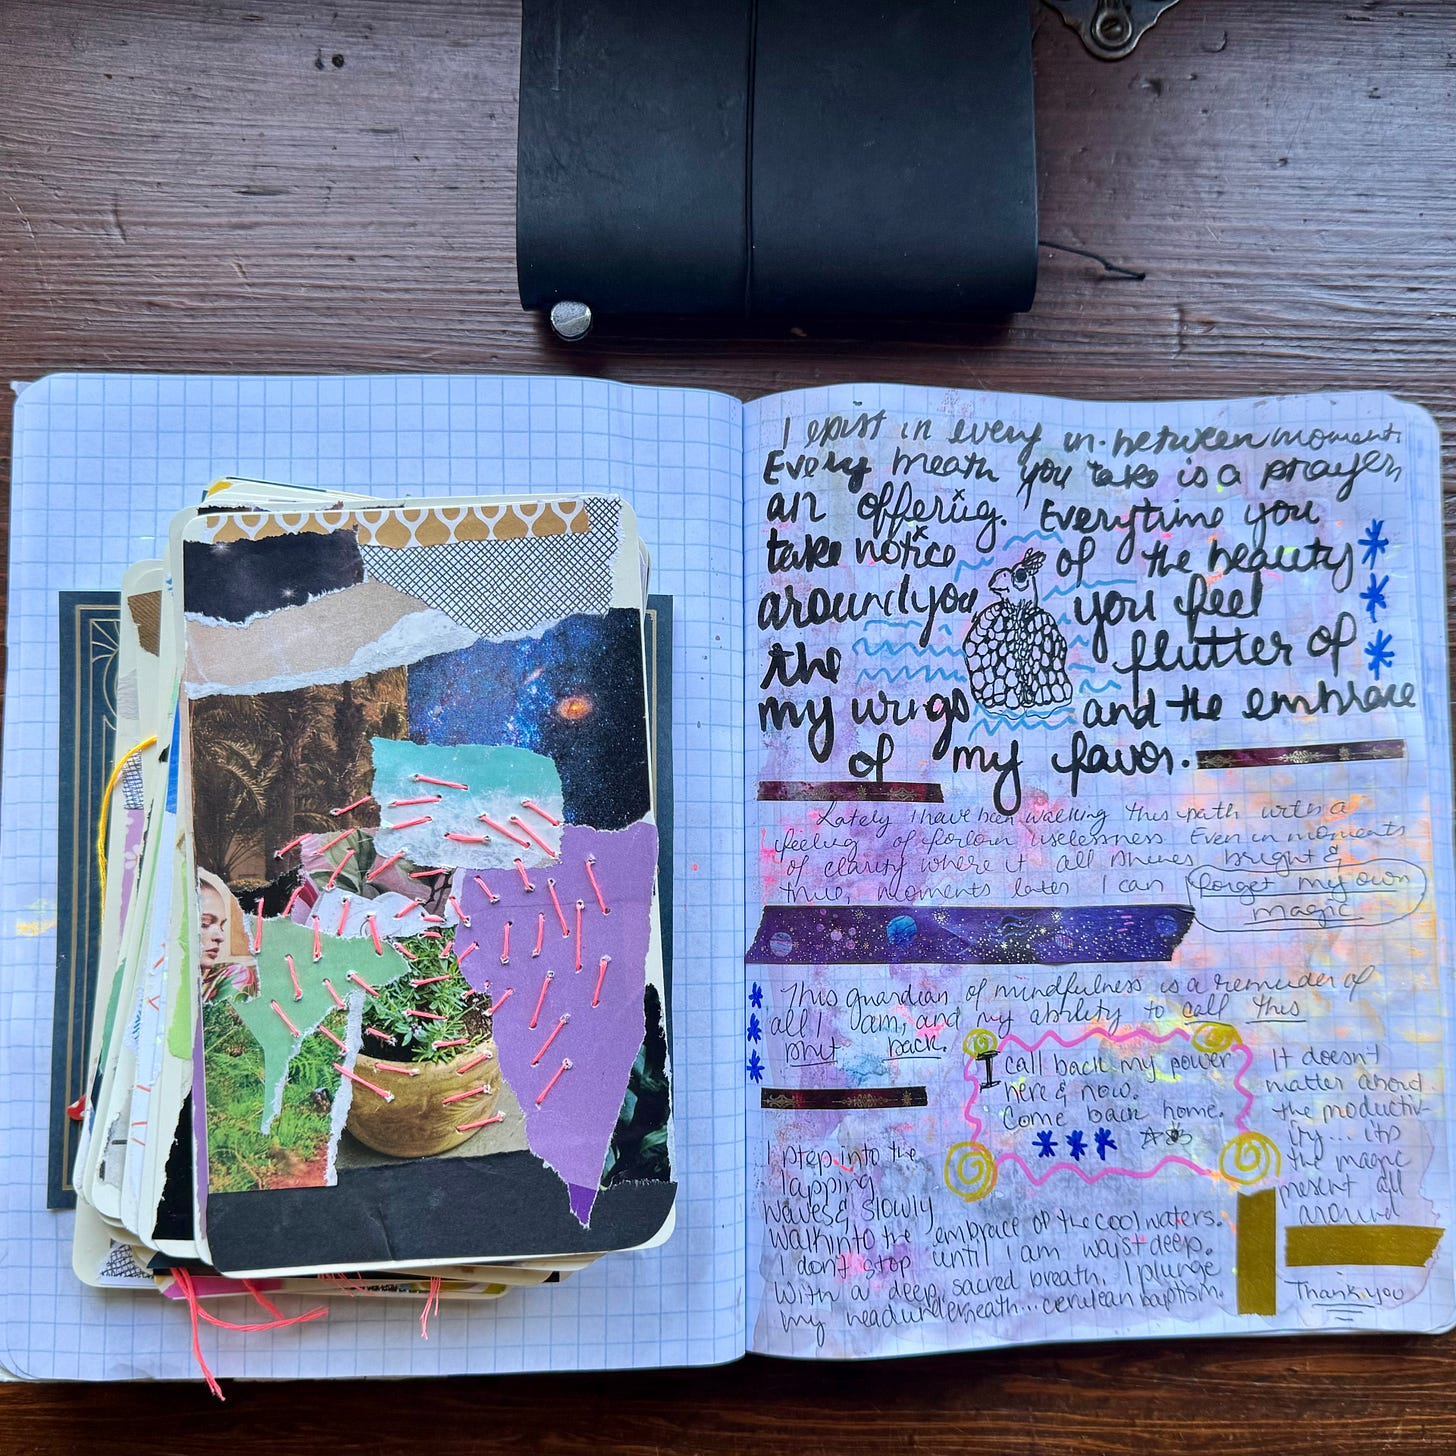 I exist in every in-between moment.
Every breath you take is a prayer
an offering. Everytime you
take notice of the beauty
around you you feel
the flutter of
my wings and the embrace
of my favor.
Lately I have been walking this path with a
feeling of forlorn uselessness. Even in moments
of clarity where it all shines bright &
true, moments later I can forget my own
magic
This guardian of mindfulness is a reminder of
all I am, and my ability to call this
shit back.
I call back my power
here & now.
Come back home.
It doesn't
matter about
the productiv-
ity... its
the magic
present all
around
I step into the
lapping
waves & slowly
walk into the embrace of the cool waters.
I don't stop until I am waist deep.
With a deep, sacred breath, I plunge
my head underneath... cerulean baptism.
Thank you